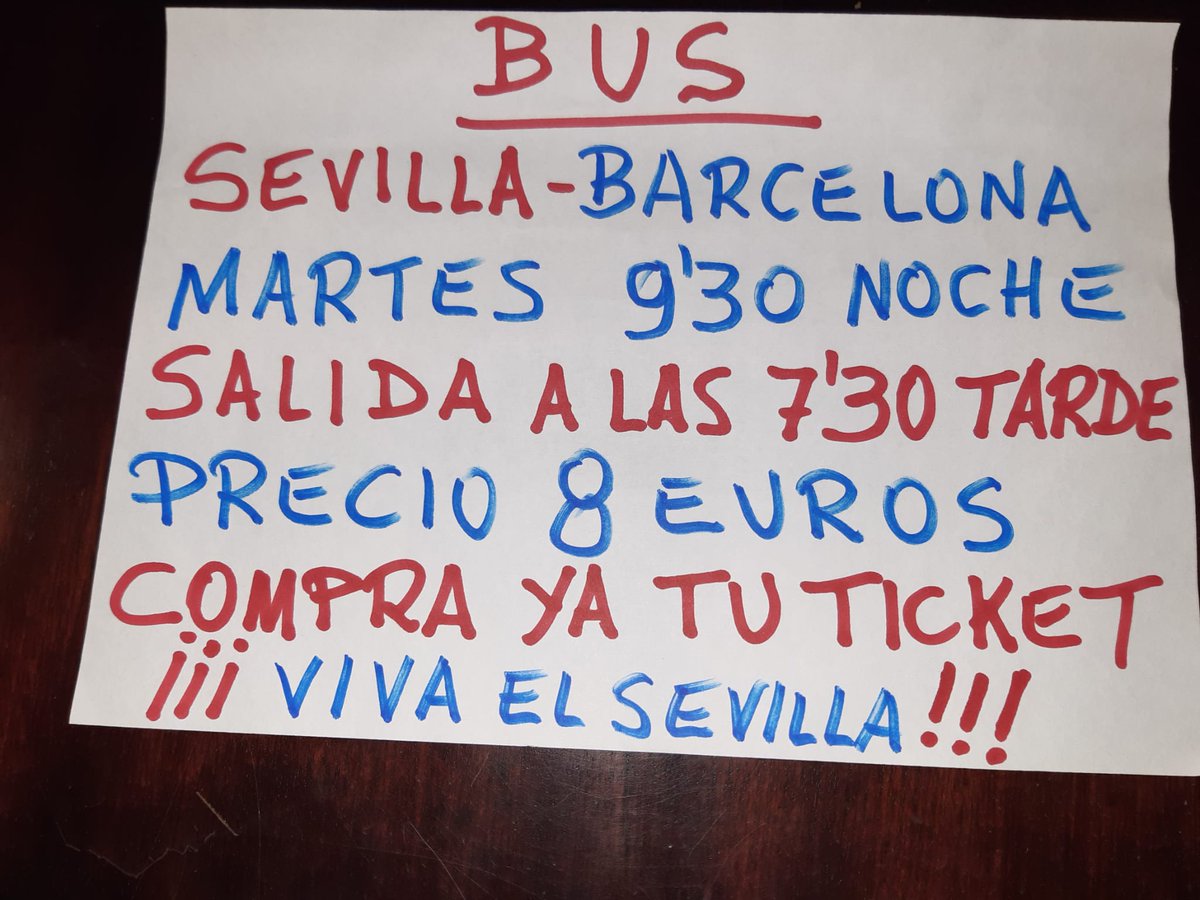 BUS
SEVILLA-BARCELONA
MARTES 9'30 NOCHE
SALIDA A LAS 7'30 TARDE
PRECIO 8 EUROS
COMPRA YA TU TICKET
¡¡¡ VIVA EL SEVILLA!!!